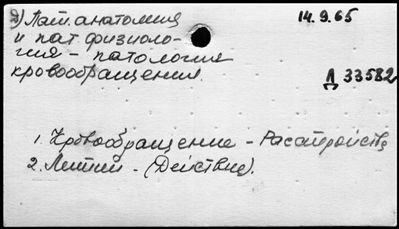 2) Пат. анатомия 14.9.65
и пат физиоло-
гия - патология
кровообращения. Д 33582
1. Кровообращение - Расстройств
2. Летии - (Действие).